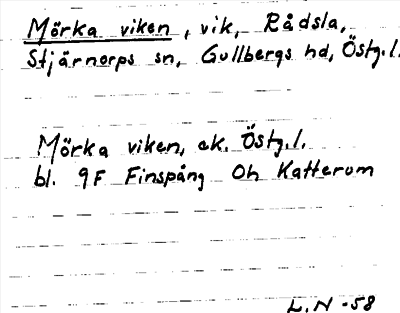 Mörka viken, vik, Rådsla,
Stjärnorps sn, Gullbergs hd, Östg.l.
Mörka viken, ek. Östg.l.
bl. 9F Finspång Oh Katterum
L.N -58